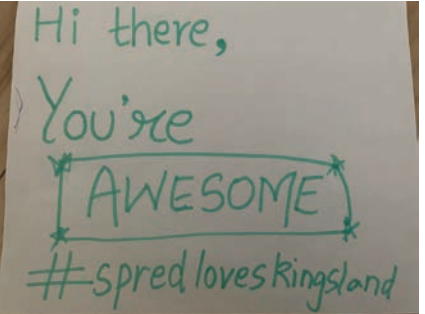 Hi there,
You're
AWESOME
#spredloveskingsland